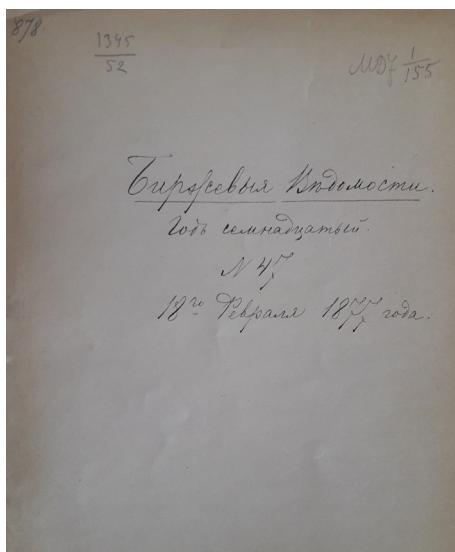 878.
1345
52
МДƵ 1/155
Биржевыя Вѣдомости.
Годъ семнадцатый.
N 47
18го Февраля 1877 года.